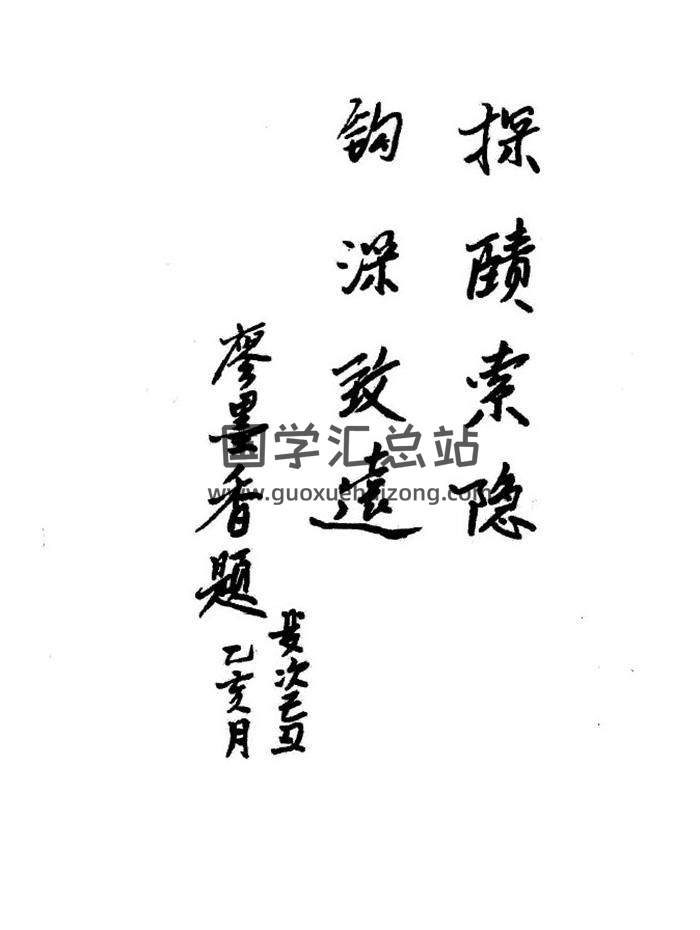 探赜索隐
钩深致遠
廖墨香题
歲次己丑
乙亥月
国学汇总站
www.guoxuehuizong.com